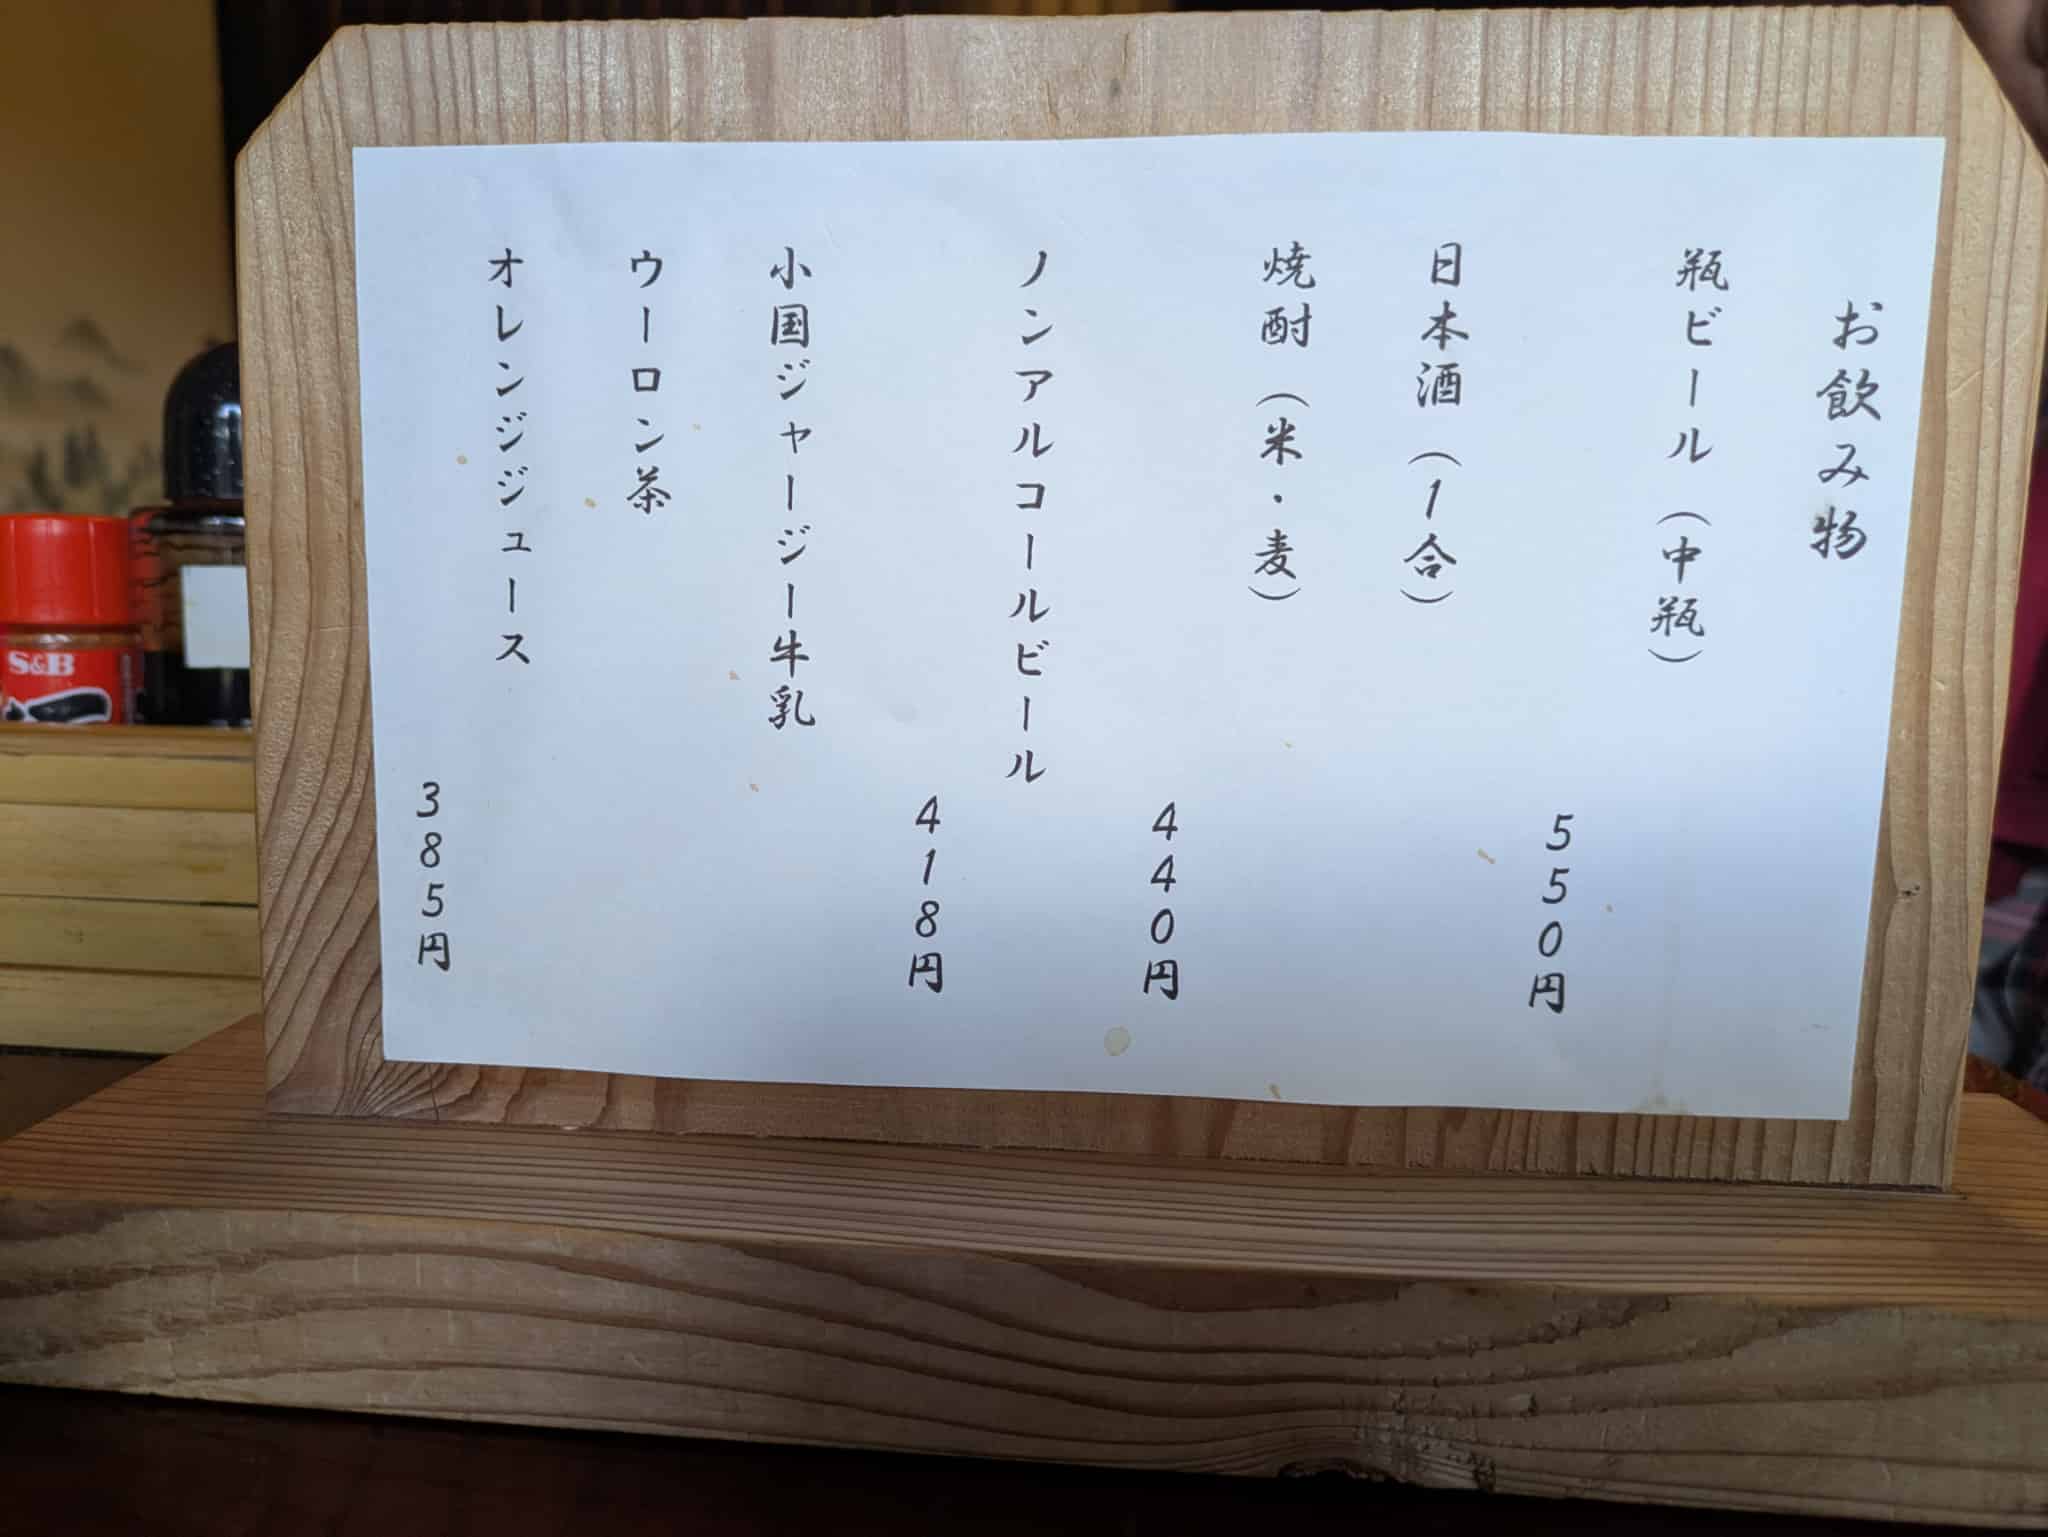 お飲み物
瓶ビール（中瓶）
550円
日本酒（1合）
焼酎（米・麦）
440円
ノンアルコールビール
418円
小国ジャージー牛乳
ウーロン茶
オレンジジュース
385円
S&B